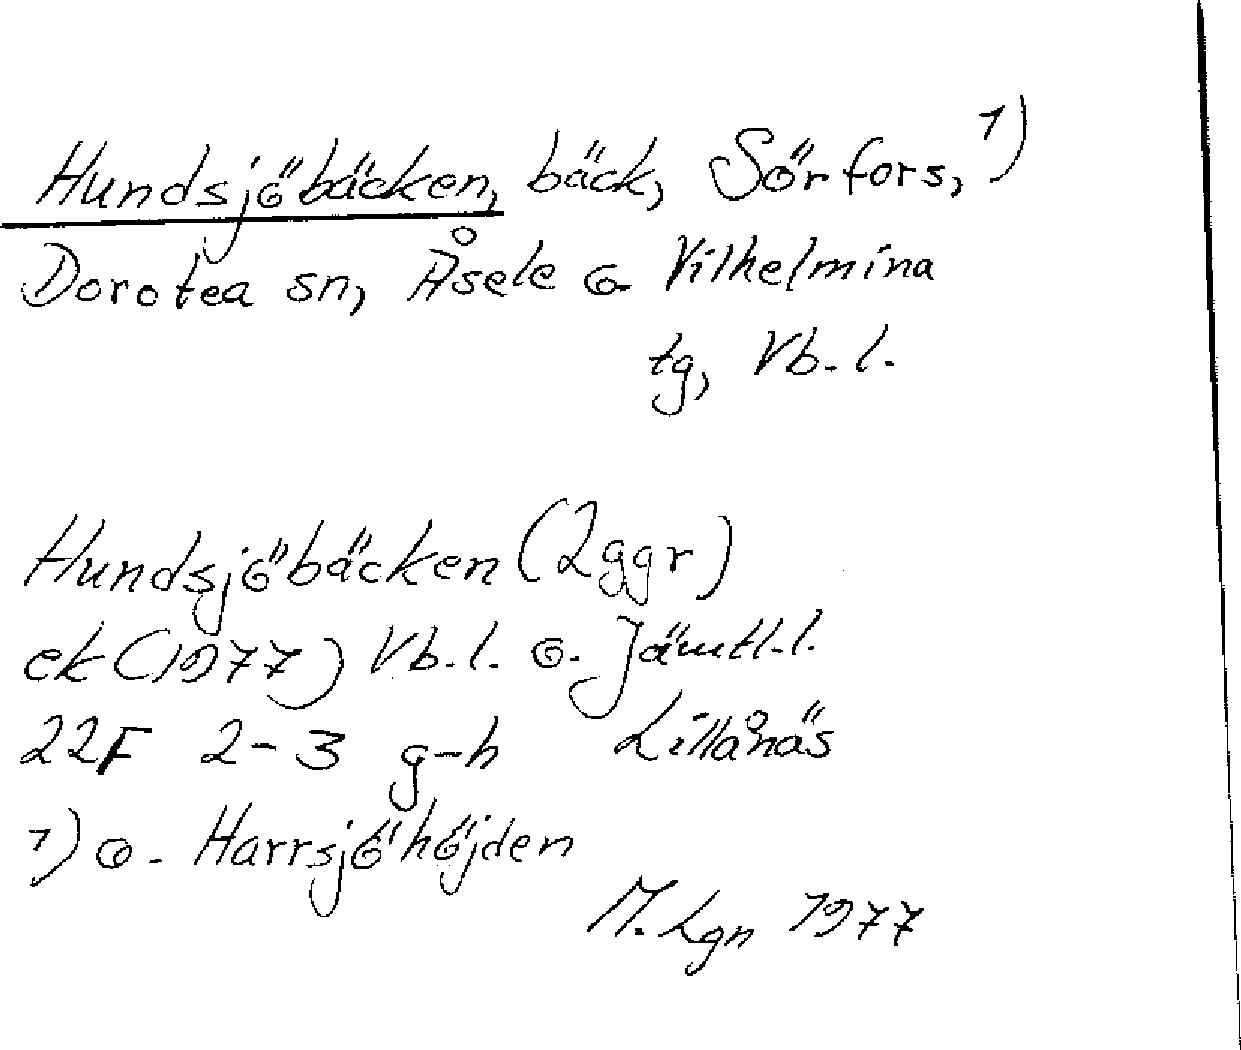 Hundsjöbäcken, bäck, Sörfors, 1)
Dorotea sn, Åsele o. Vilhelmina
tg, Vb. l.
Hundsjöbäcken (2 ggr)
ek (1977) Vb. l. o. Jämtl. l.
22F 2-3 g-h Lillånäs
1) o. Harrsjöhöjden
M. Lgn 1977